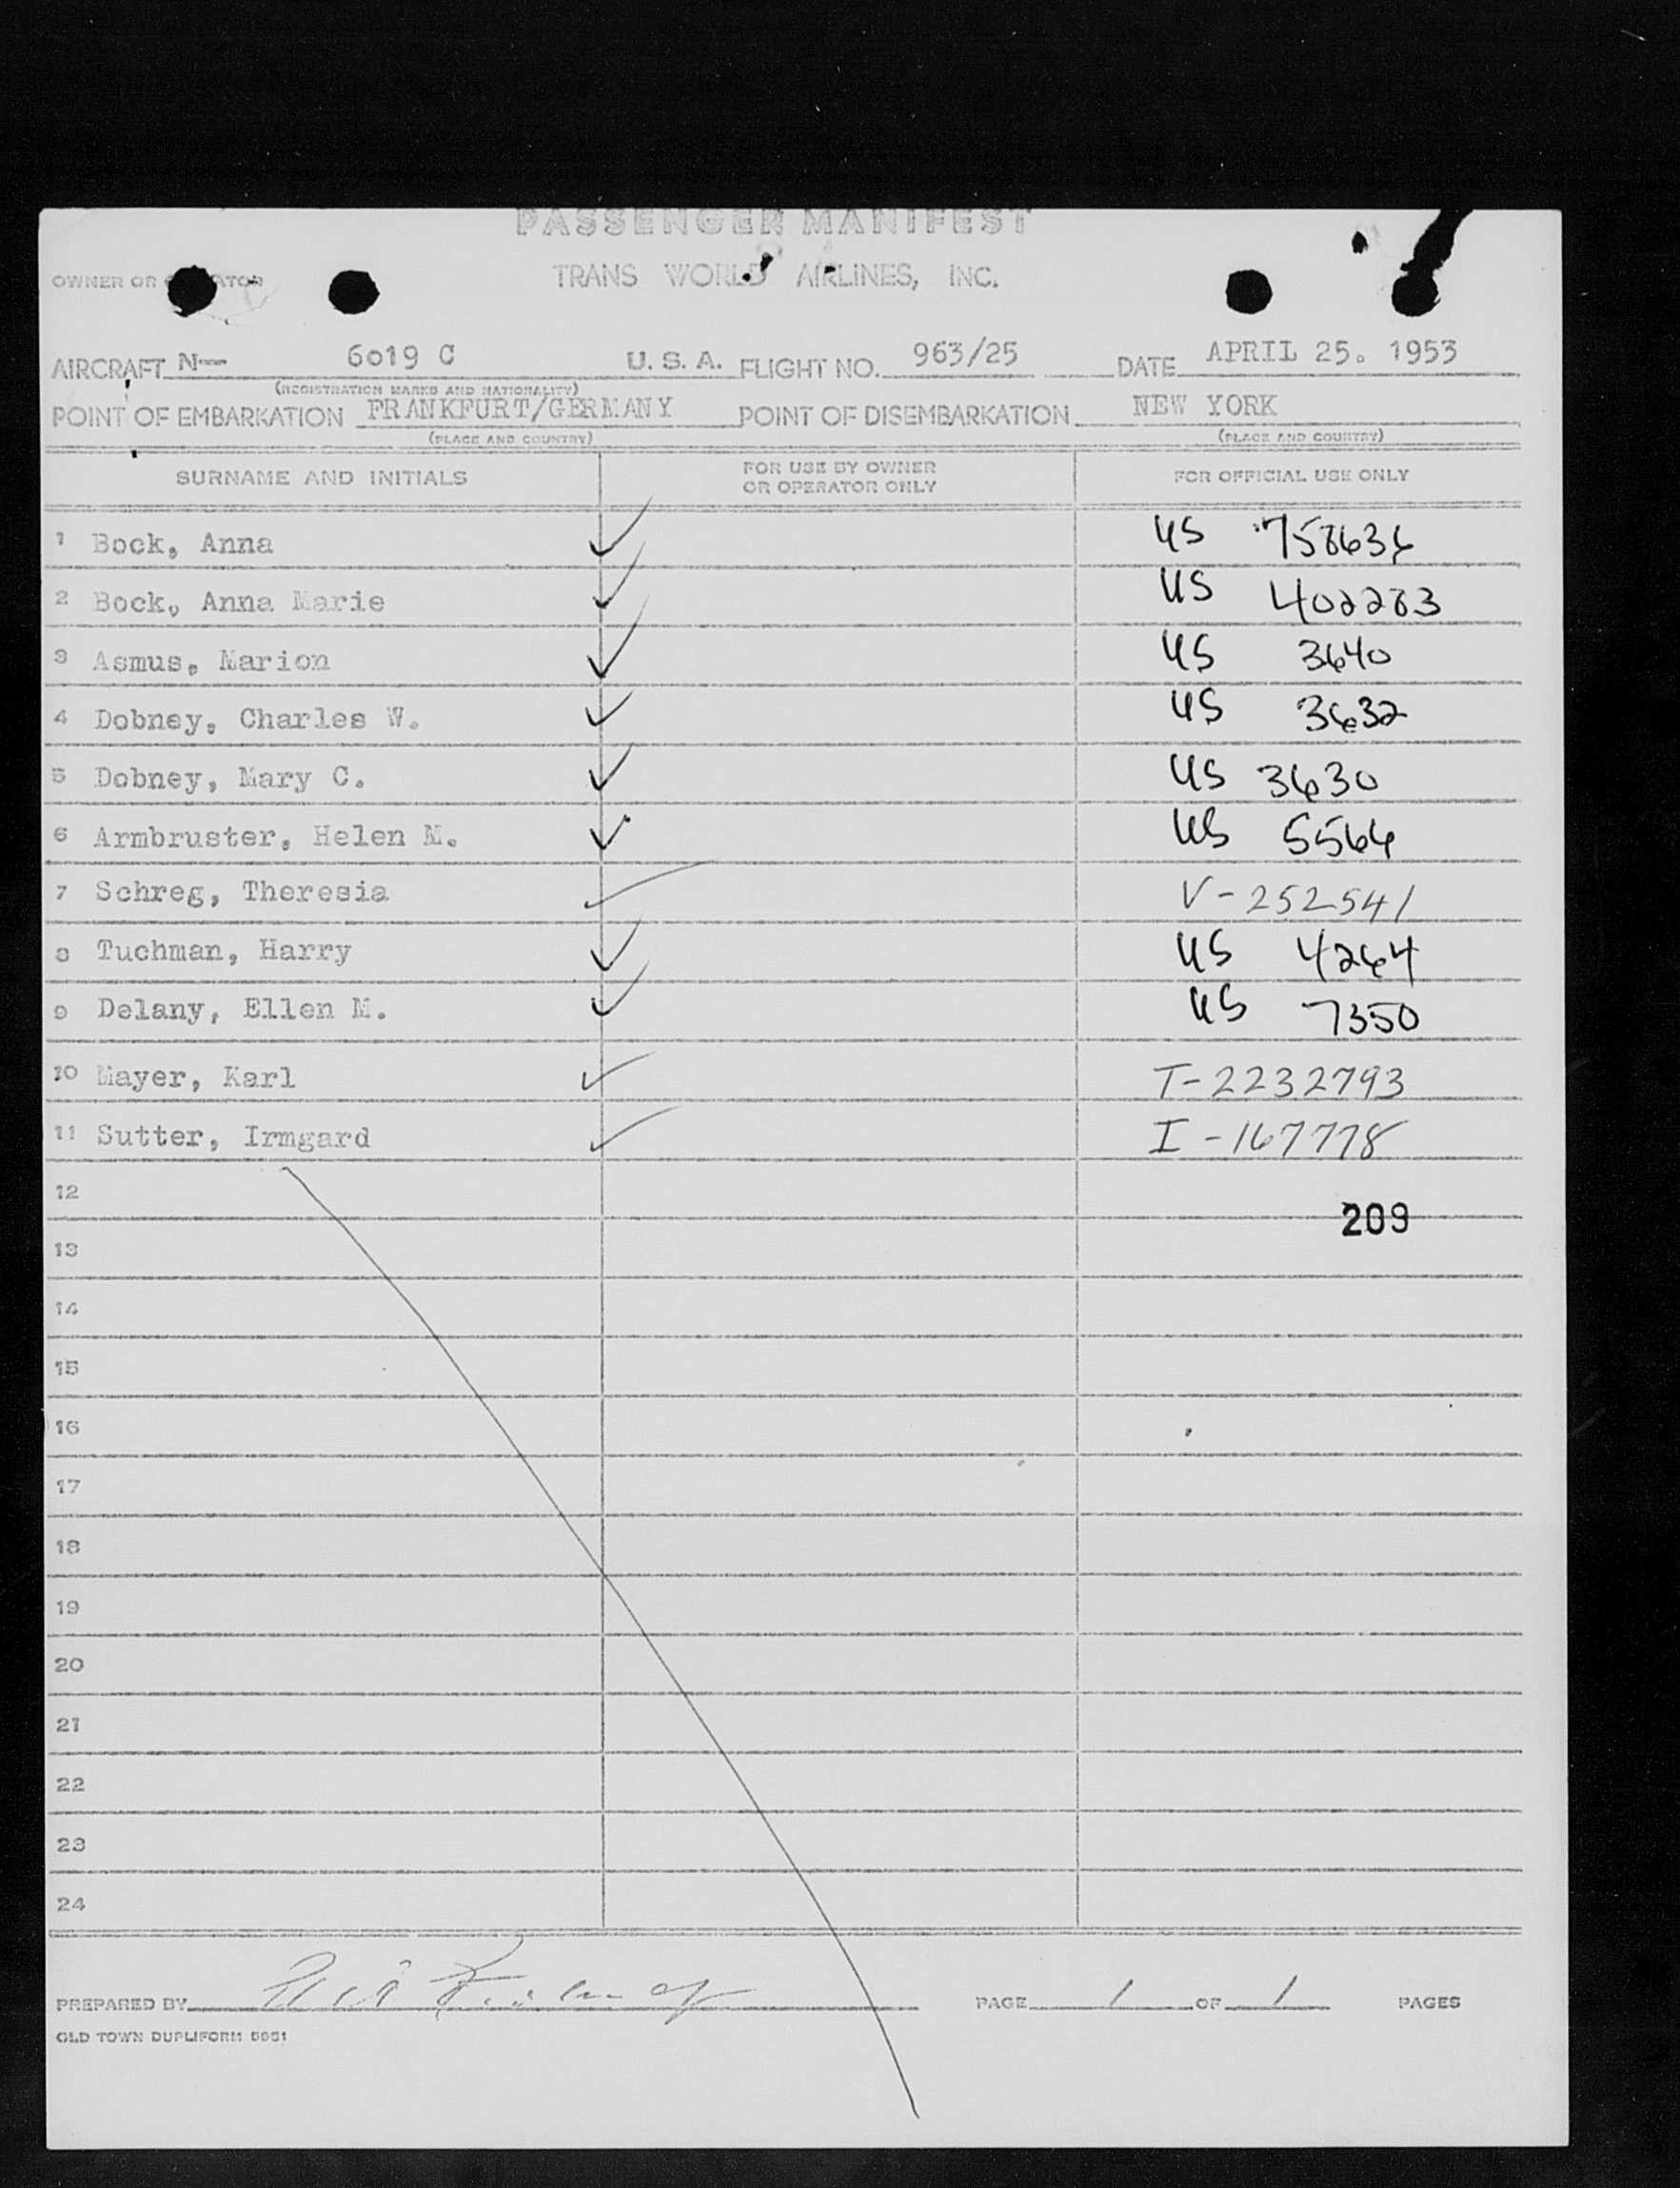 PASSENGER MANIFEST
OWNER OR TRANS WORLD AIRLINES, INC.
AIRCRAFT N— 6019 C U. S. A. FLIGHT NO. 963/25 DATE APRIL 25. 1953
(REGISTRATION MARKS AND NATIONALITY)
POINT OF EMBARKATION FRANKFURT/GERMANY POINT OF DISEMBARKATION NEW YORK
(PLACE AND COUNTRY) (PLACE AND COUNTRY)
SURNAME AND INITIALS FOR USE BY OWNER OR OPERATOR ONLY FOR OFFICIAL USE ONLY
1 Bock, Anna ✓ US 758636
2 Bock, Anna Marie ✓ US 402283
3 Asmus, Marion ✓ US 3640
4 Dobney, Charles W. ✓ US 3632
5 Dobney, Mary C. ✓ US 3630
6 Armbruster, Helen M. ✓ US 5564
7 Schreg, Theresia ✓ V-252541
8 Tuchman, Harry ✓ US 4264
9 Delany, Ellen M. ✓ US 7350
10 Mayer, Karl ✓ T-2232793
11 Sutter, Irmgard ✓ I-167778
12
209
13
14
15
16
17
18
19
20
21
22
23
24
PREPARED BY PAGE 1 OF 1 PAGES
OLD TOWN DUPLIFORM